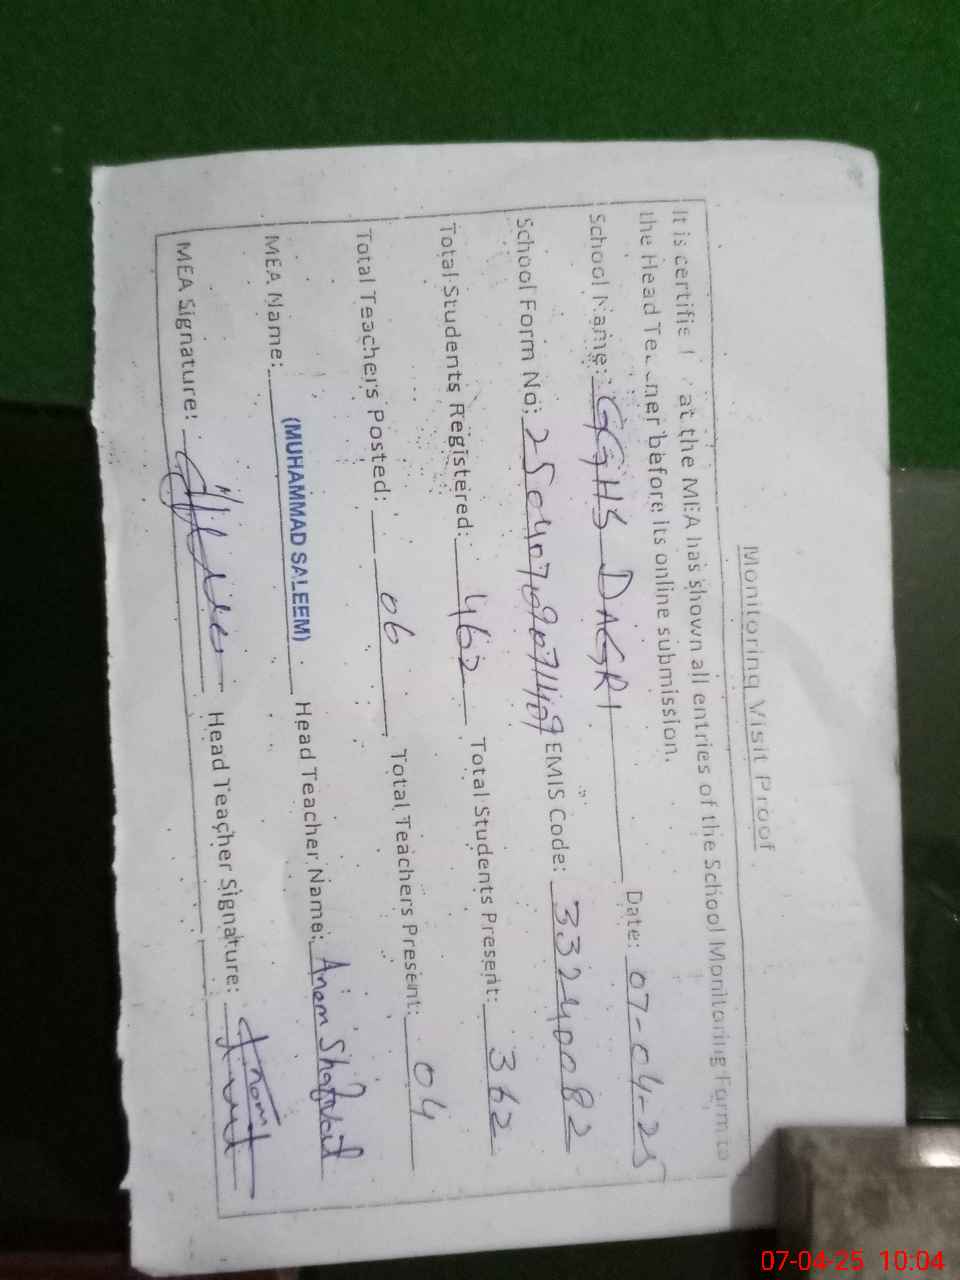 Monitoring Visit Proof
It is certifie at the MEA has shown all entries of the School Monitoring Form to
the Head Te ner before its online submission.
School Name: GGHS DAGRI Date: 07-04-25
School Form No: EMIS Code: 33240082
Total Students Registered: 462 Total Students Present: 362
Total Teachers Posted: 06 Total Teachers Present: 04
MEA Name: (MUHAMMAD SALEEM) Head Teacher Name: Anam
MEA Signature: Head Teacher Signature:
07-04-25 10:04